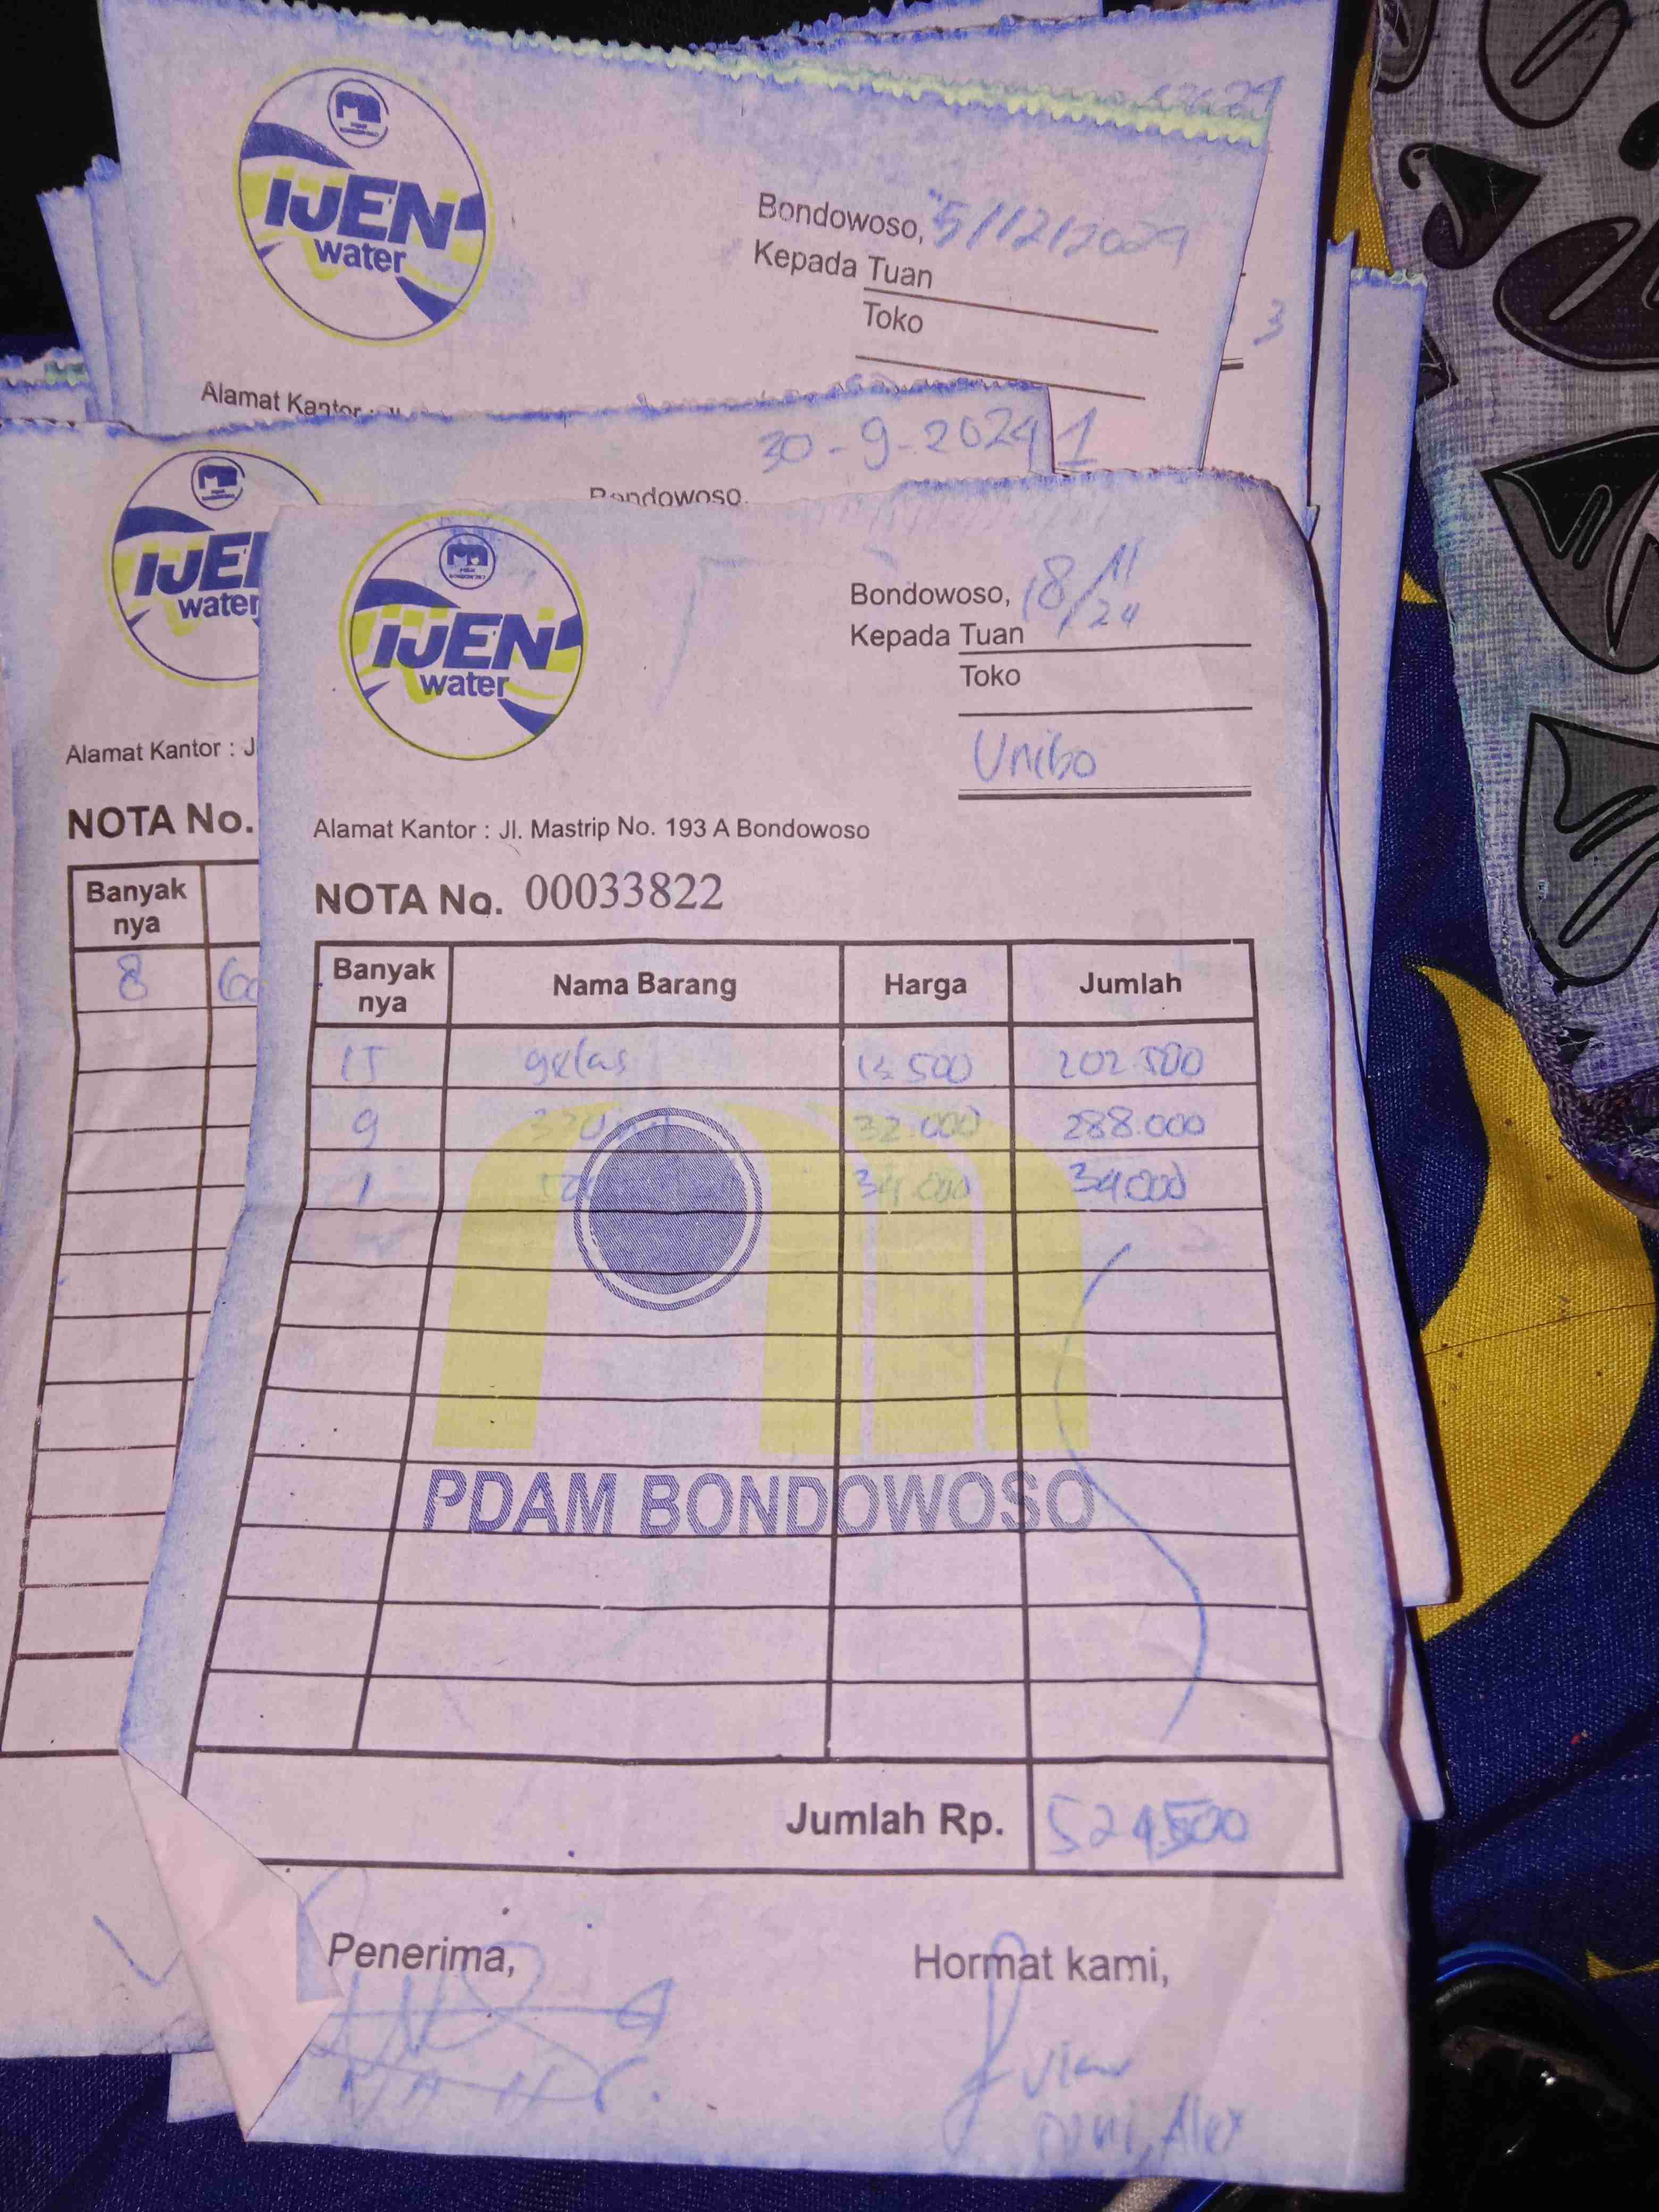 IJEN
water
Bondowoso, 5/12/2024
Kepada Tuan
Toko
3
Alamat Kantor :
30-9-2024 1
Bondowoso,
IJE
water
Alamat Kantor : J
NOTA No.
Banyak
nya
8
IJEN
water
Bondowoso, 18/11/24
Kepada Tuan
Toko
Unibo
Alamat Kantor : Jl. Mastrip No. 193 A Bondowoso
NOTA No. 00033822
Banyak nya Nama Barang Harga Jumlah
15 gelas 13.500 202.500
9 330 32.000 288.000
1 34.000 34.000
PDAM BONDOWOSO
Jumlah Rp. 524.500
Penerima, Hormat kami,
Alex